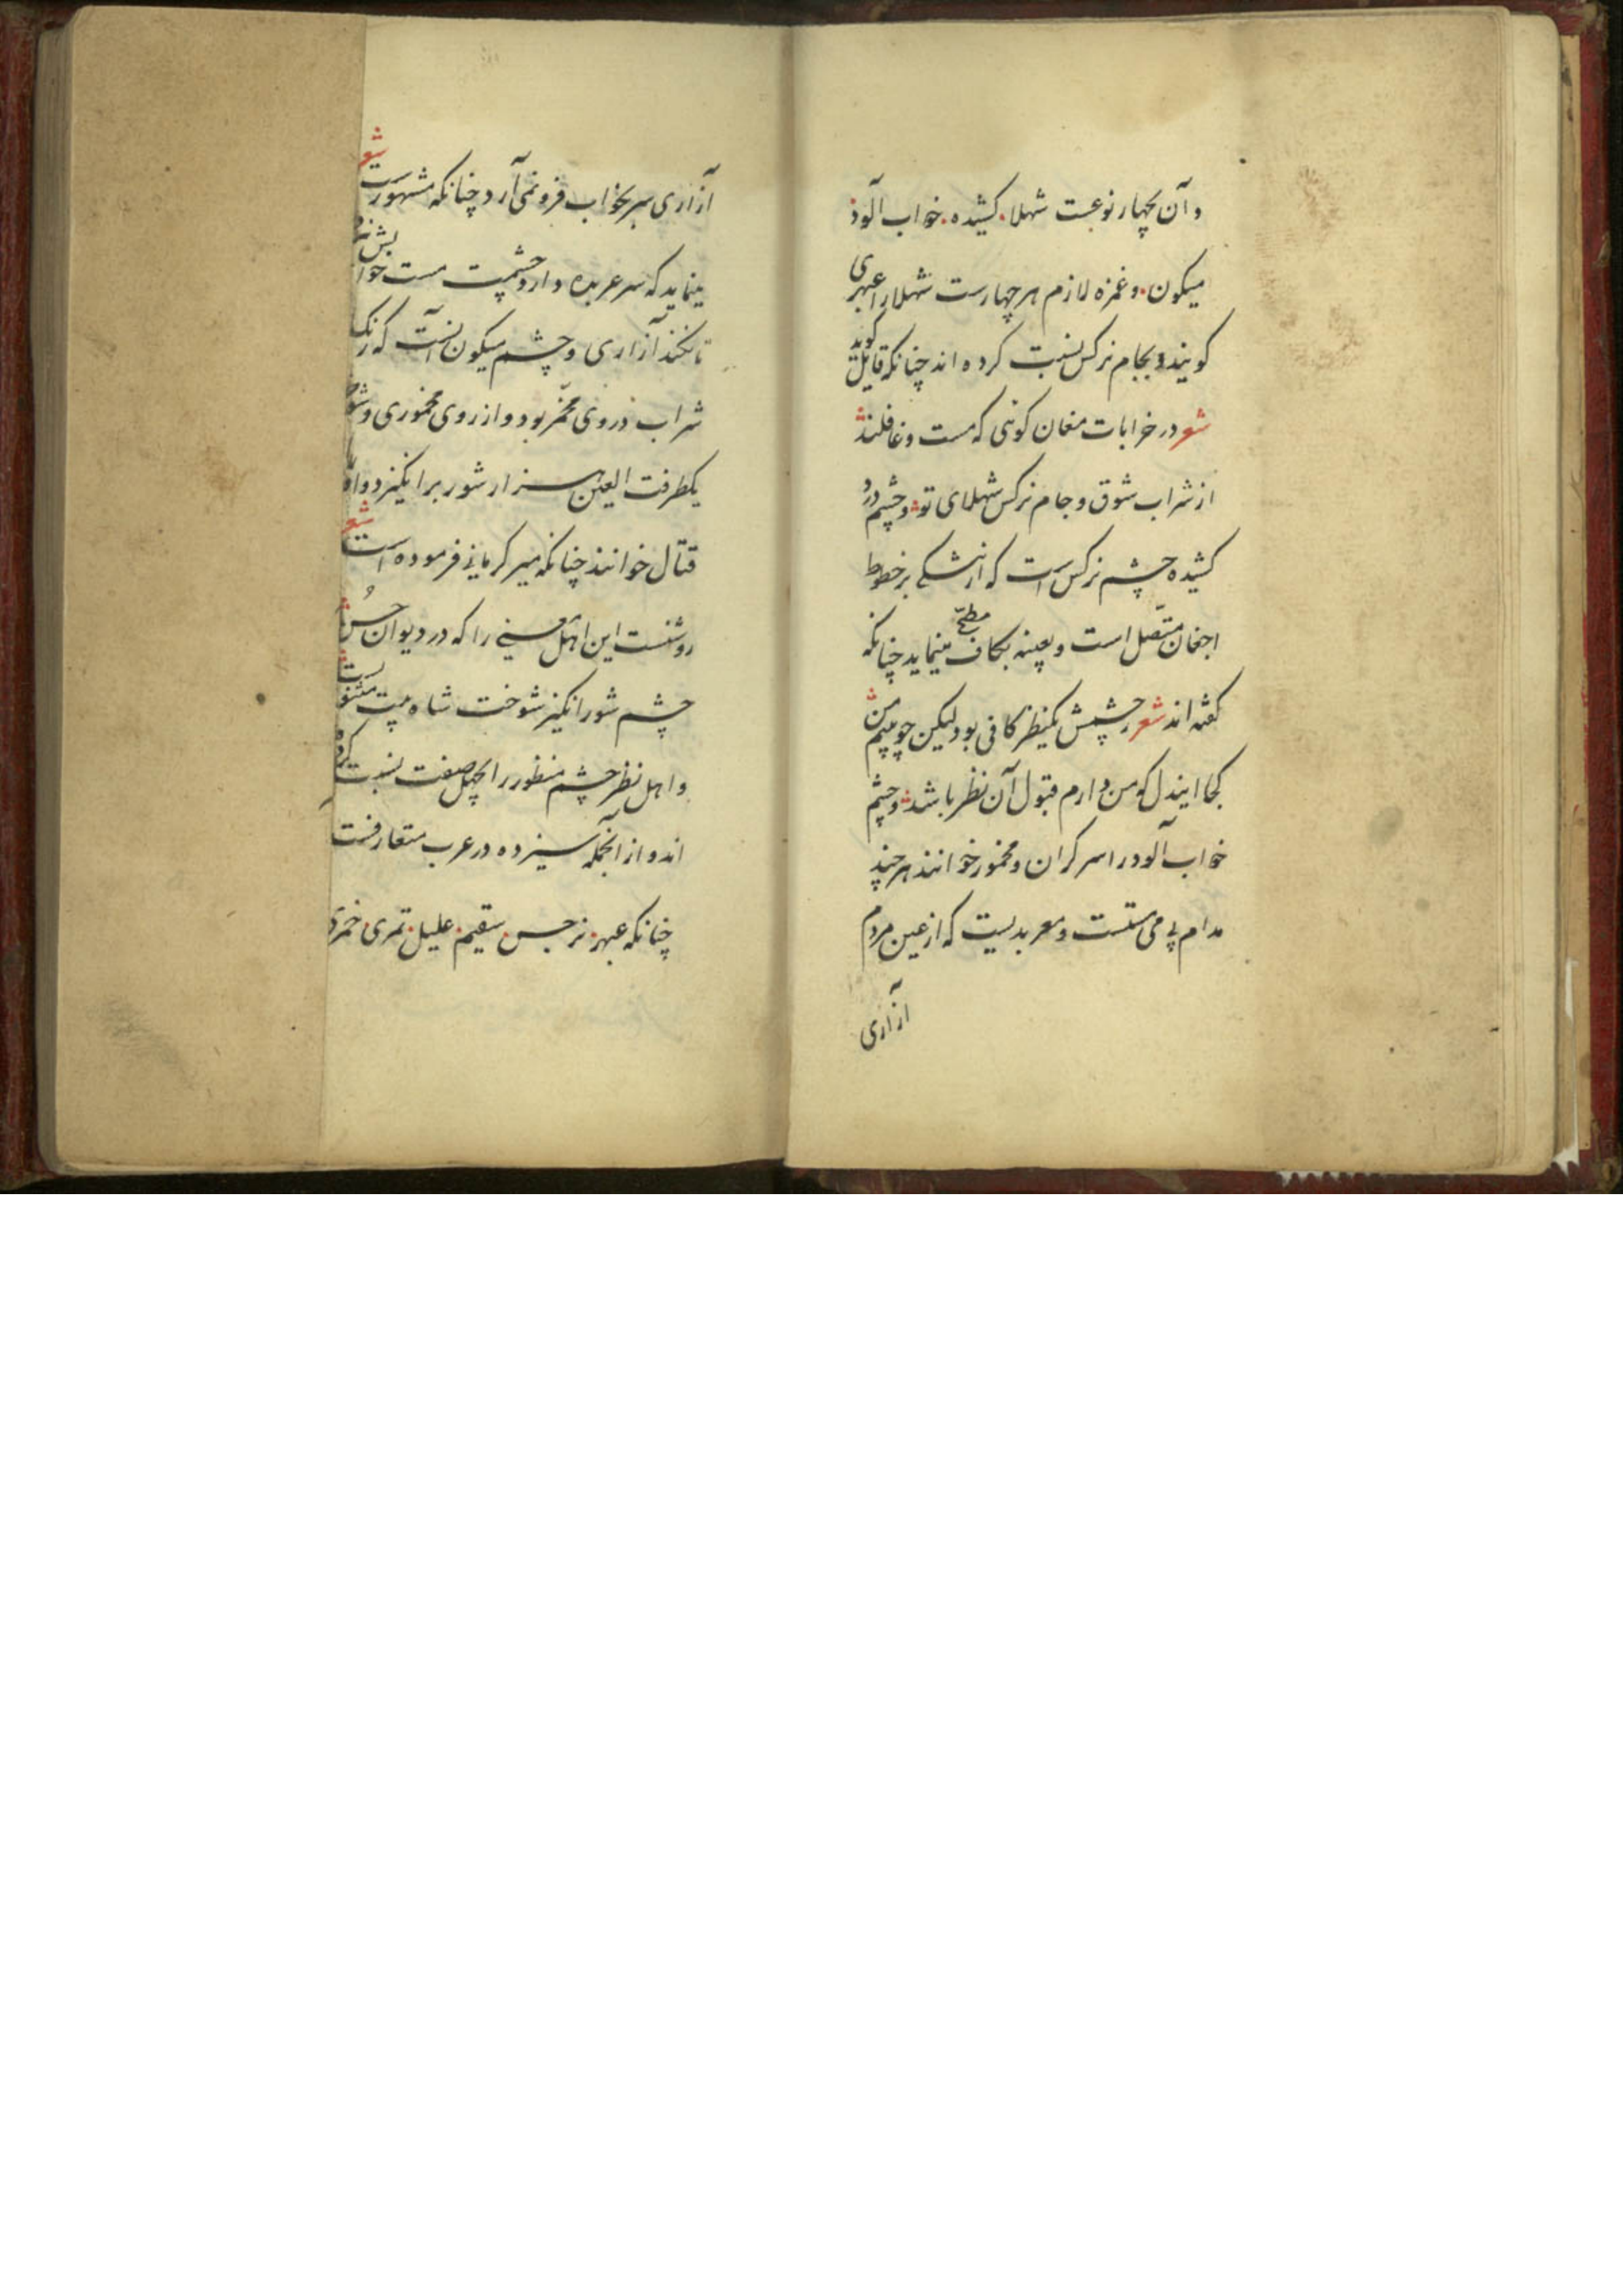 و آن بچهار نوعست شهلا. کشیده. خواب آلود
میکون. و غمزه لازم هر چهارست شهلا را عبهری
کویند و بجام نرکس نسبت کرده اند چنانکه قایل کوید
شعر در خرابات مغان کوئی که مست و غافلند
از شراب شوق و جام نرکس شهلای تو و چشم
کشیده چشم نرکس است که از مشکی بر خطوط
اجفان متصل است و بعینه بکاف مسطح مینماید چنانکه
کفته اند شعر ز چشمش یکنظر کافی بود لیکن چو می‌بینم من
کجا ایندل که من دارم قبول آن نظر باشد و چشم
خواب آلود را سر کران و مخمور خوانند هر چند
مدام بی می مستست و معربدیست که از عین مردم
آزاری
آزاری سر بخواب فرو نمی آرد چنانکه مشهورست شعر
مینماید که سر عربده دارد چشمت مست خوابش نبرد
تا نکند آزاری و چشم میکون آنست که رنک
شراب در وی مخمر بود و از روی مخموری و شوخی
بیکطرفت العین هزار شور برانکیزد و او را
قتال خوانند چنانکه میر کرمانی فرموده است شعر
روشنست این اهل معنی را که در دیوان حسن
چشم شورانکیز شوخت شاه بیت مثنویست
و اهل نظر چشم منظور را بچهل صفت نسبت کرده
اند و از آنجمله سیزده در عرب متعارفست
چنانکه عبهر. نرجس. سقیم. علیل. تمری. خمری